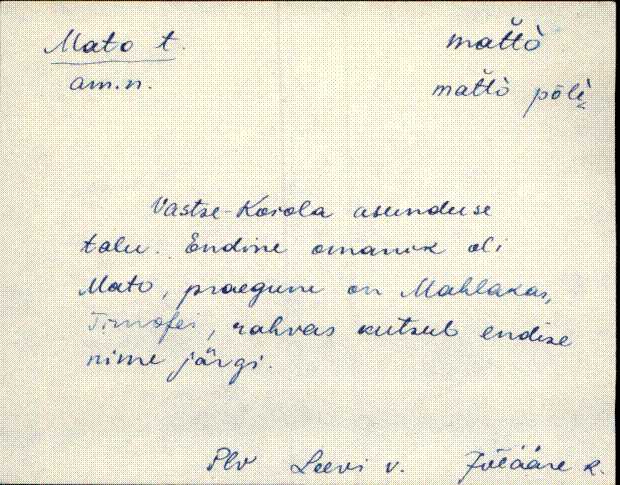 Mato t.
mat̆tò
am.n.
mat̆tò põlì
Vastse-Koiola asunduse
talu. Endine omanik oli
Mato, praegune on Mahlakas,
Timofei, rahvas kutsub endise
nime järgi.
Plv Leevi v. Jõeääre k.